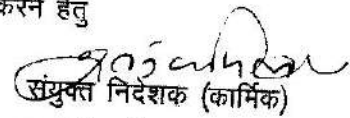 करने हेतु
संयुक्त निदेशक (कार्मिक)